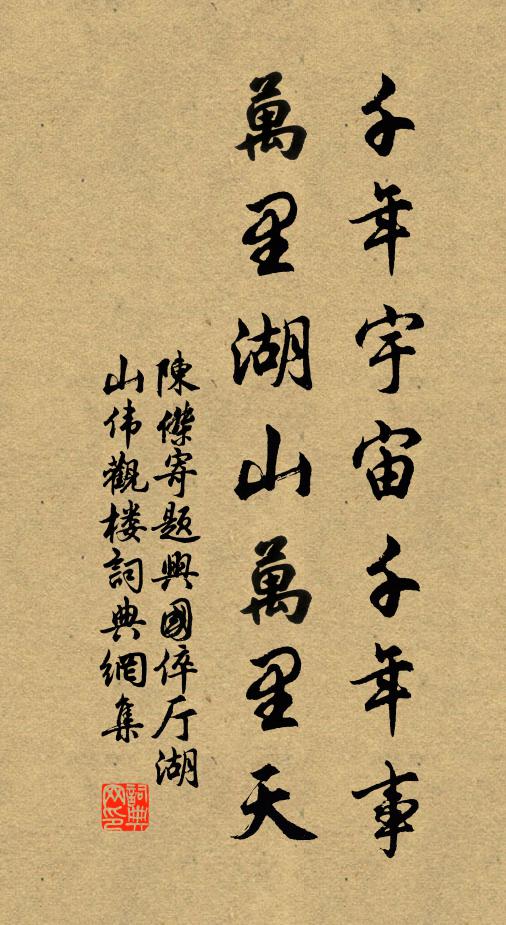 千年宇宙千年事
萬里湖山萬里天
陳傑寄題興國倅厅湖
山伟觀楼詞典網集
詞典
网印